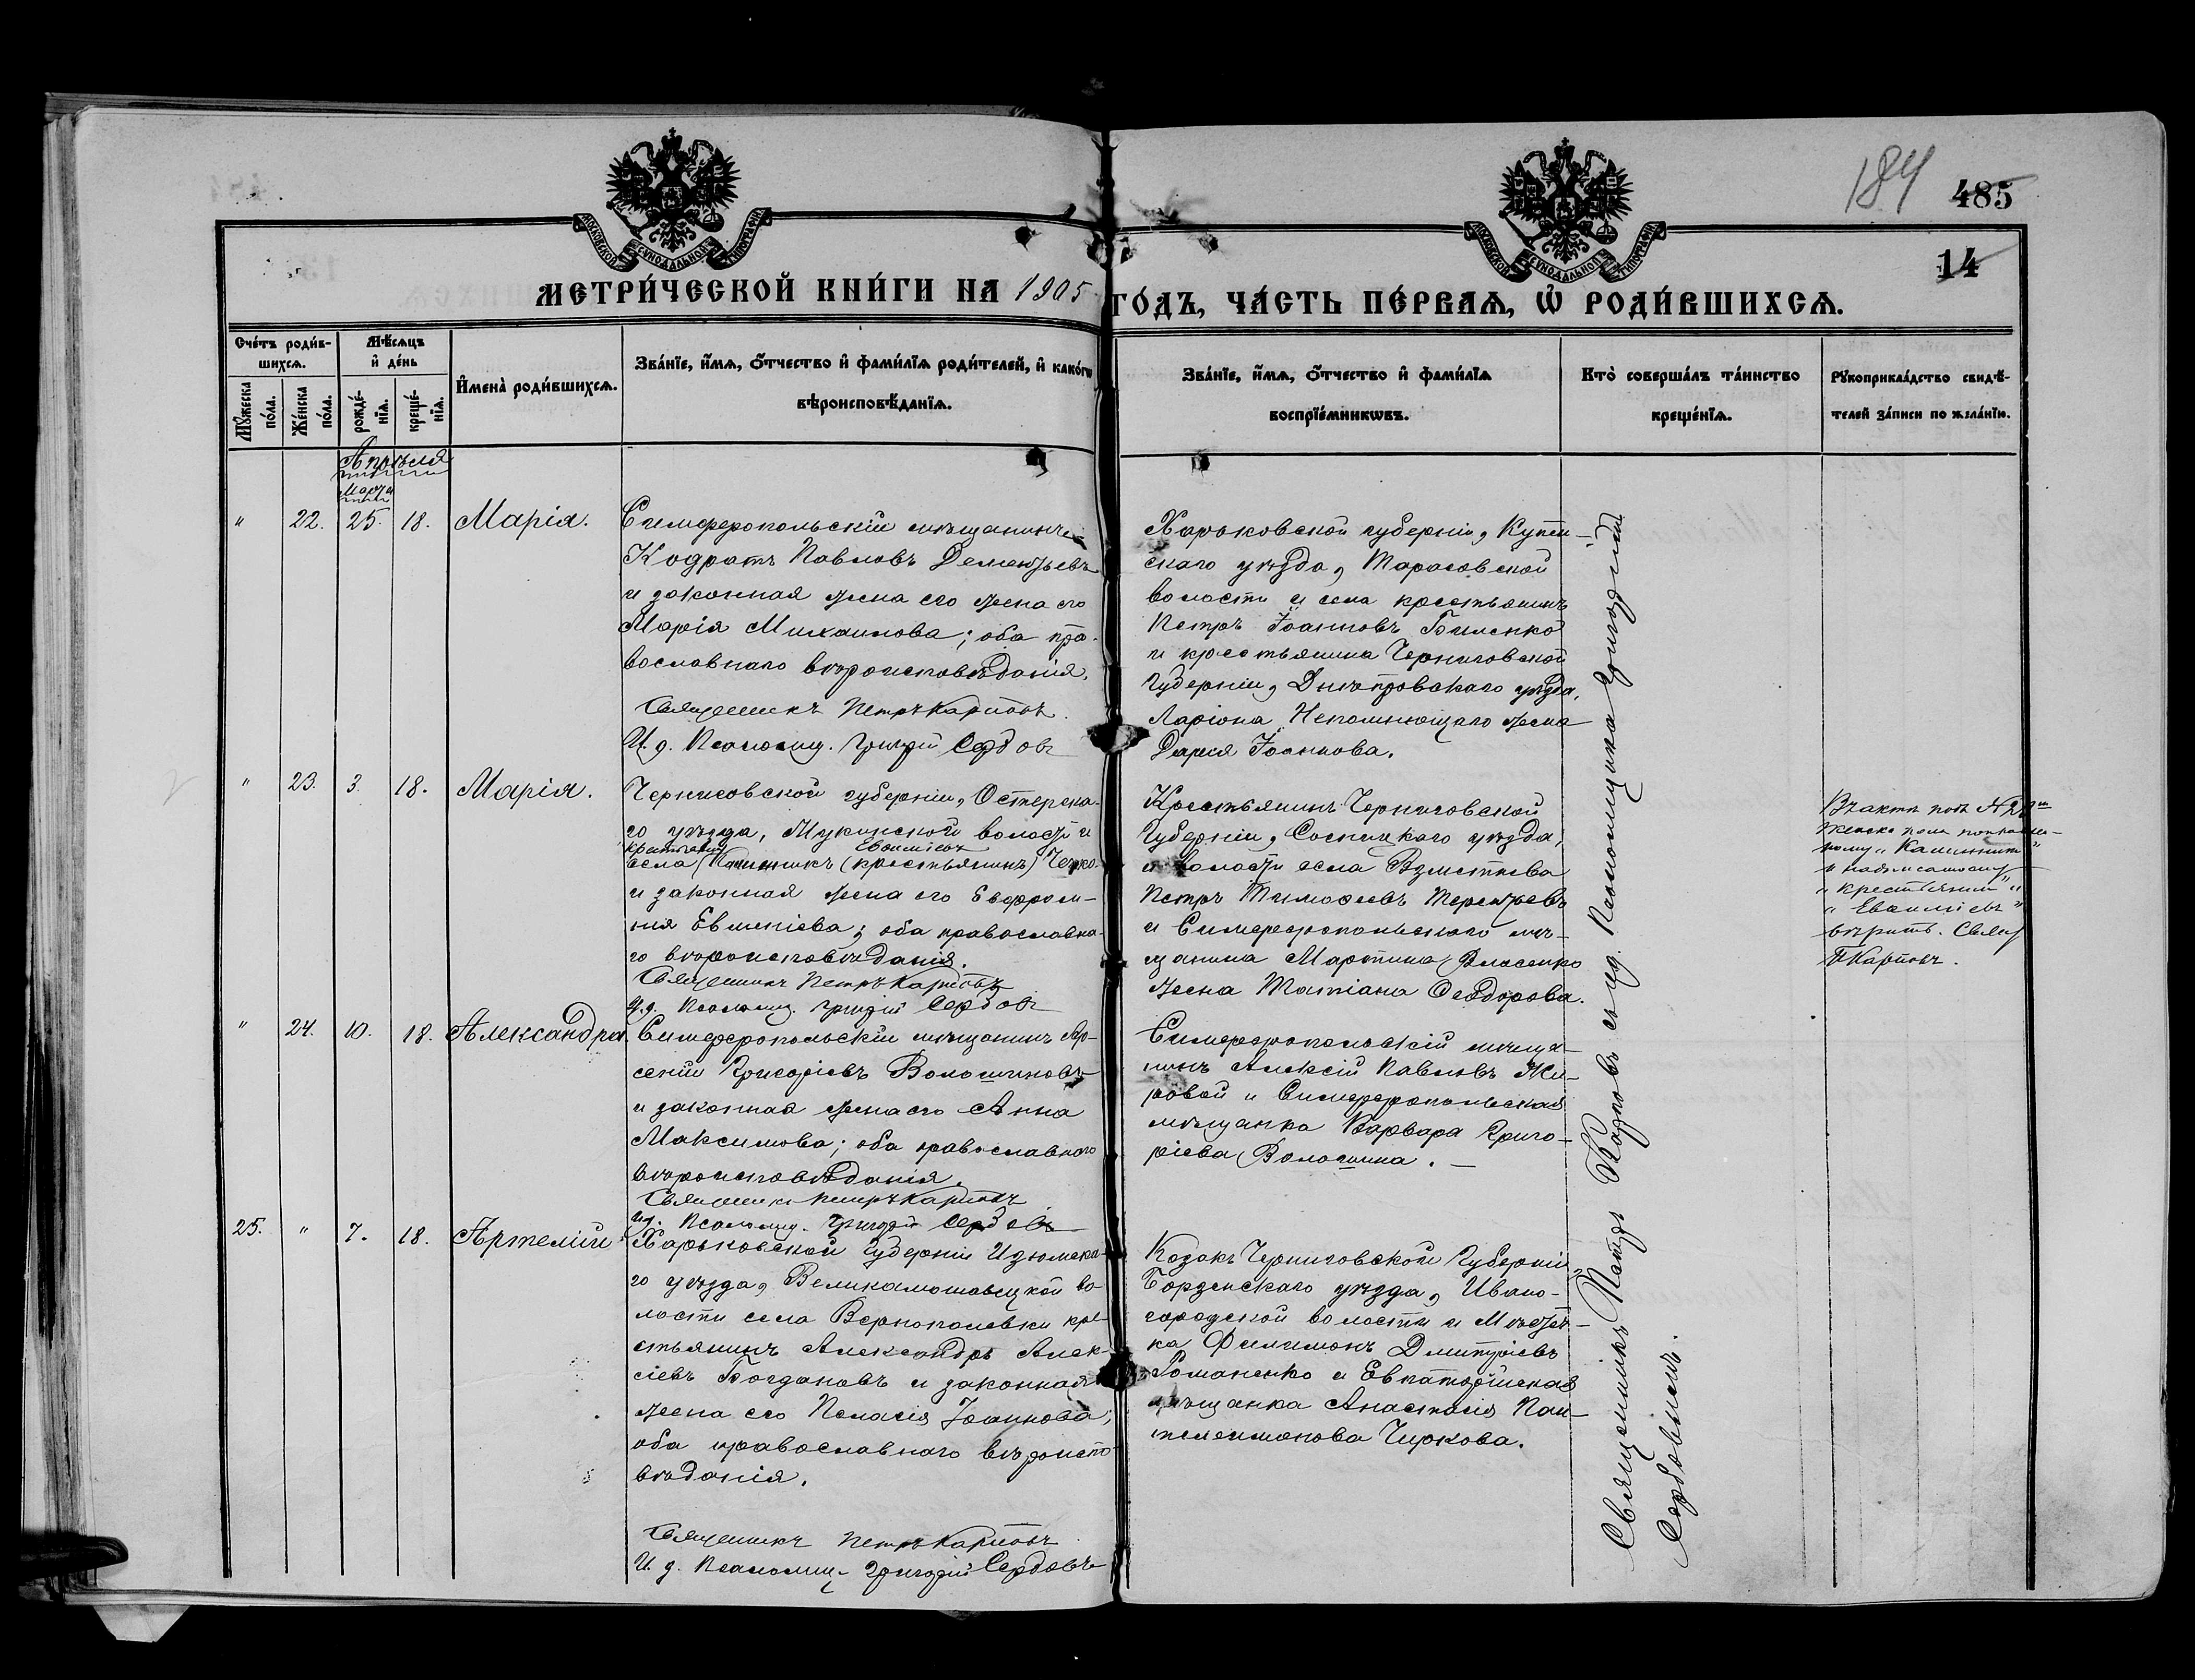 184 485
14
МОСКОВСКОЙ СѴНОДАЛЬНОЙ ТИПОГРАФІИ
МОСКОВСКОЙ СѴНОДАЛЬНОЙ ТИПОГРАФІИ
МЕТРИ́ЧЕСКОЙ КНИ́ГИ НА 1905 ГО́ДЪ, ЧА́СТЬ ПЕ́РВАѦ, Ѽ РОДИ́ВШИХСѦ.
Сче́тъ роди́в-
шихсѧ.
Мѣ́сѧцъ
и҆ де́нь
Мꙋ́жеска
по́ла.
Же́нска
по́ла.
рожде́-
нїѧ.
креще́-
нїѧ.
И҆мена̀ роди́вшихсѧ.
Зва́нїе, и҆́мѧ, ѻ҆́тчество и҆ фамѝлїѧ роди́телей, и҆ како́гѡ
вѣроисповѣ́данїѧ.
Зва́нїе, и҆́мѧ, ѻ҆́тчество и҆ фамѝлїѧ
воспрїе́мникѡвъ.
Кто̀ соверша́лъ та́инство
креще́нїѧ.
Рꙋкоприкла́дство свидѣ́-
телей за́писи по жела́нїю.
Апрѣля
Марта
" 22. 25. 18. Марія.
Симферопольскій мѣщанинъ
Кодратъ Павловъ Дементьевъ
и законная жена его жена его
Марія Михаилова; оба пра-
вославнаго вѣроисповѣданія.
Священникъ Петръ Карповъ.
И. д. Псаломщ. Григорій Сербовъ
Харьковской губерніи, Купян-
скаго уѣзда, Тарасовской
волости и села крестьянинъ
Петръ Іоанновъ Биленко
и крестьянина Черниговской
губерніи, Днѣпровскаго уѣзда,
Ларіона Непомнющаго жена
Дарія Іоаннова.
" 23. 3. 18. Марія.
Черниговской губерніи, Остерска-
го уѣзда, волости и
крестьянинъ Евѳиміевъ
села (крестьянинъ)
и законная жена его Евфроси-
нія Евменіева; оба православна-
го вѣроисповѣданія.
Священникъ Петръ Карповъ
И. д. Псаломщ. Григорій Сербовъ
Крестьянинъ Черниговской
губерніи, Сосницкаго уѣзда,
и волости села
Петръ Тимоѳеевъ Терентьевъ
и Симферопольскаго мѣ-
щанина Мартина Власенко
жена Татіана Ѳеодорова.
Въ актѣ подъ № 23м
женска пола
"
и надписанному
" крестьянинъ "
" Евѳиміевъ "
вѣрить. Свящ
П Карповъ.
" 24. 10. 18. Александра.
Симферопольскій мѣщанинъ Ар-
сеній Григоріевъ Волошиновъ
и законная жена его Анна
Максимова; оба православнаго
вѣроисповѣданія.
Священникъ Петръ Карповъ
И. д. Псаломщ. Григорій Сербовъ
Симферопольскій мѣща-
нинъ Алексій Павловъ Жи-
ровой и Симферопольская
мѣщанка Варвара Григо-
ріева Волошина.
25. " 7. 18. Артемій
Харьковской губерніи Изюмска-
го уѣзда, Великамошавецкой во-
лости села Вернополевки кре-
стьянинъ Александръ Алек-
сіевъ Богдановъ и законная
жена его Пелагія Іоаннова;
оба православнаго вѣроиспо-
вѣданія.
Священникъ Петръ Карповъ
И. д. Псаломщ. Григорій Сербовъ
Козакъ Черниговской губерніи,
Борзенскаго уѣзда, Ивано-
городской волости и Мѣстеч-
ка Филимонъ Дмитріевъ
Романенко и Евпаторійская
мѣщанка Анастасія Пан-
телеимонова Чиркова.
Священникъ Петръ Карповъ съ и.д. Псаломщика Григоріемъ
Сербовымъ.